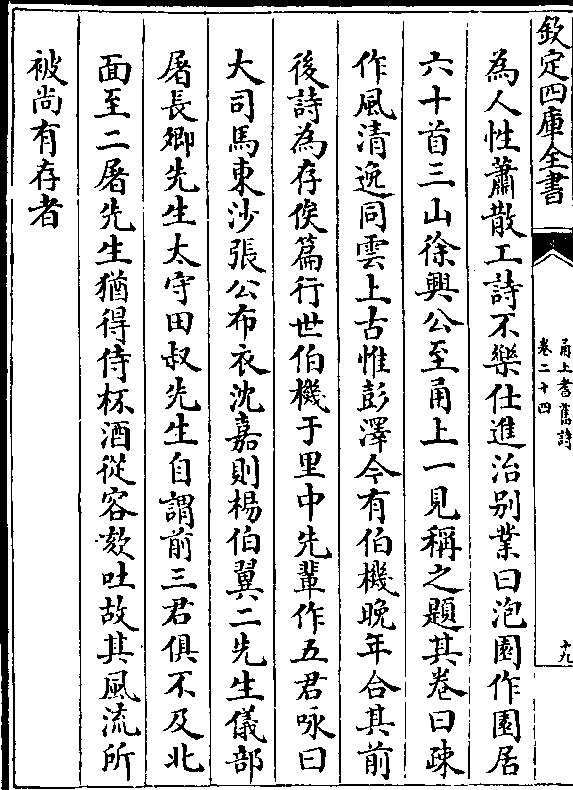 欽定四庫全書
甬上耆舊詩
卷二十四
十九
為人性蕭散工詩不樂仕進治别業曰泡園作園居
六十首三山徐興公至甬上一見稱之題其卷曰疎
作風清逸同雲上古惟彭澤今有伯機晚年合其前
後詩為存俟篇行世伯機于里中先輩作五君咏曰
大司馬東沙張公布衣沈嘉則楊伯翼二先生儀部
屠長卿先生太守田叔先生自謂前三君俱不及北
面至二屠先生猶得侍杯酒從容欬吐故其風流所
被尚有存者